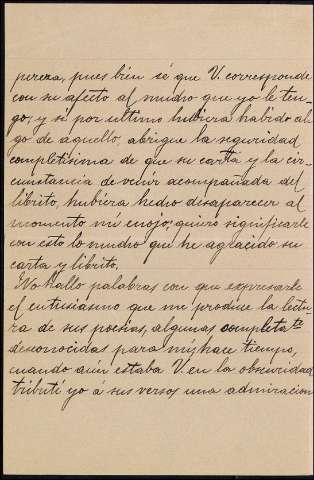 pereza, pues bien sé que V. corresponde
con su afecto al mucho que yo le ten-
go; y si por ultimo hubiera habido al-
go de aquello, abrigue la seguridad
completísima de que su carta y la cir-
cunstancia de venir acompañada del
librito, hubiera hecho desaparecer al
momento mi enojo; quiero significarle
con esto lo mucho que he agradecido su
carta y librito.
No hallo palabras con que expresarle
el entusiasmo que me produce la lectu-
ra de sus poesias, algunas completa.te
desconocidas para mí; hace tiempo,
cuando aún estaba V. en la obscuridad
tributé yo á sus versos una admiracion